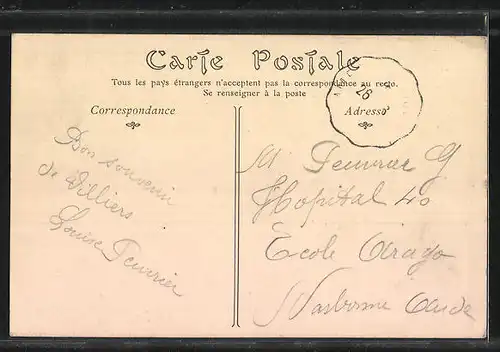 Carte Postale
Tous les pays étrangers n'acceptent pas la correspondance au recto.
Se renseigner à la poste
Correspondance
Adresse
28
Bon souvenir
de Villiers
Louise
M
Hopital 40
Ecole Arago
Narbonne Aude